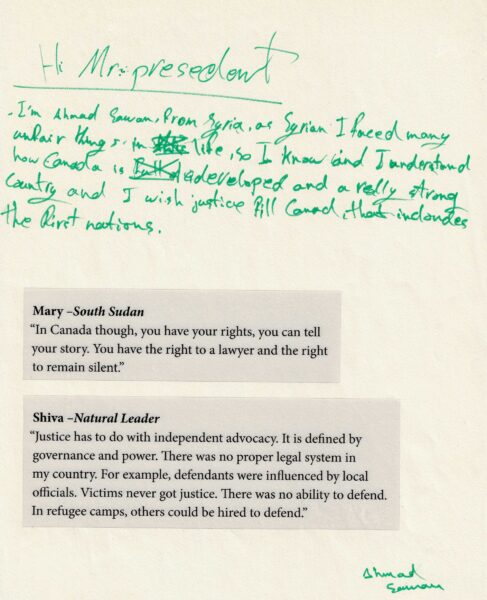 Hi Mr. presedent
. I'm Ahmad Sawan, From Syria, as Syrian I faced many
unfair things in life, so I know and I understand
how Canada is developed and a relly strong
Country and I wish justice fill Canad, that includes
the First nations.
Mary –South Sudan
“In Canada though, you have your rights, you can tell
your story. You have the right to a lawyer and the right
to remain silent.”
Shiva –Natural Leader
“Justice has to do with independent advocacy. It is defined by
governance and power. There was no proper legal system in
my country. For example, defendants were influenced by local
officials. Victims never got justice. There was no ability to defend.
In refugee camps, others could be hired to defend.”
Ahmad
Sawan